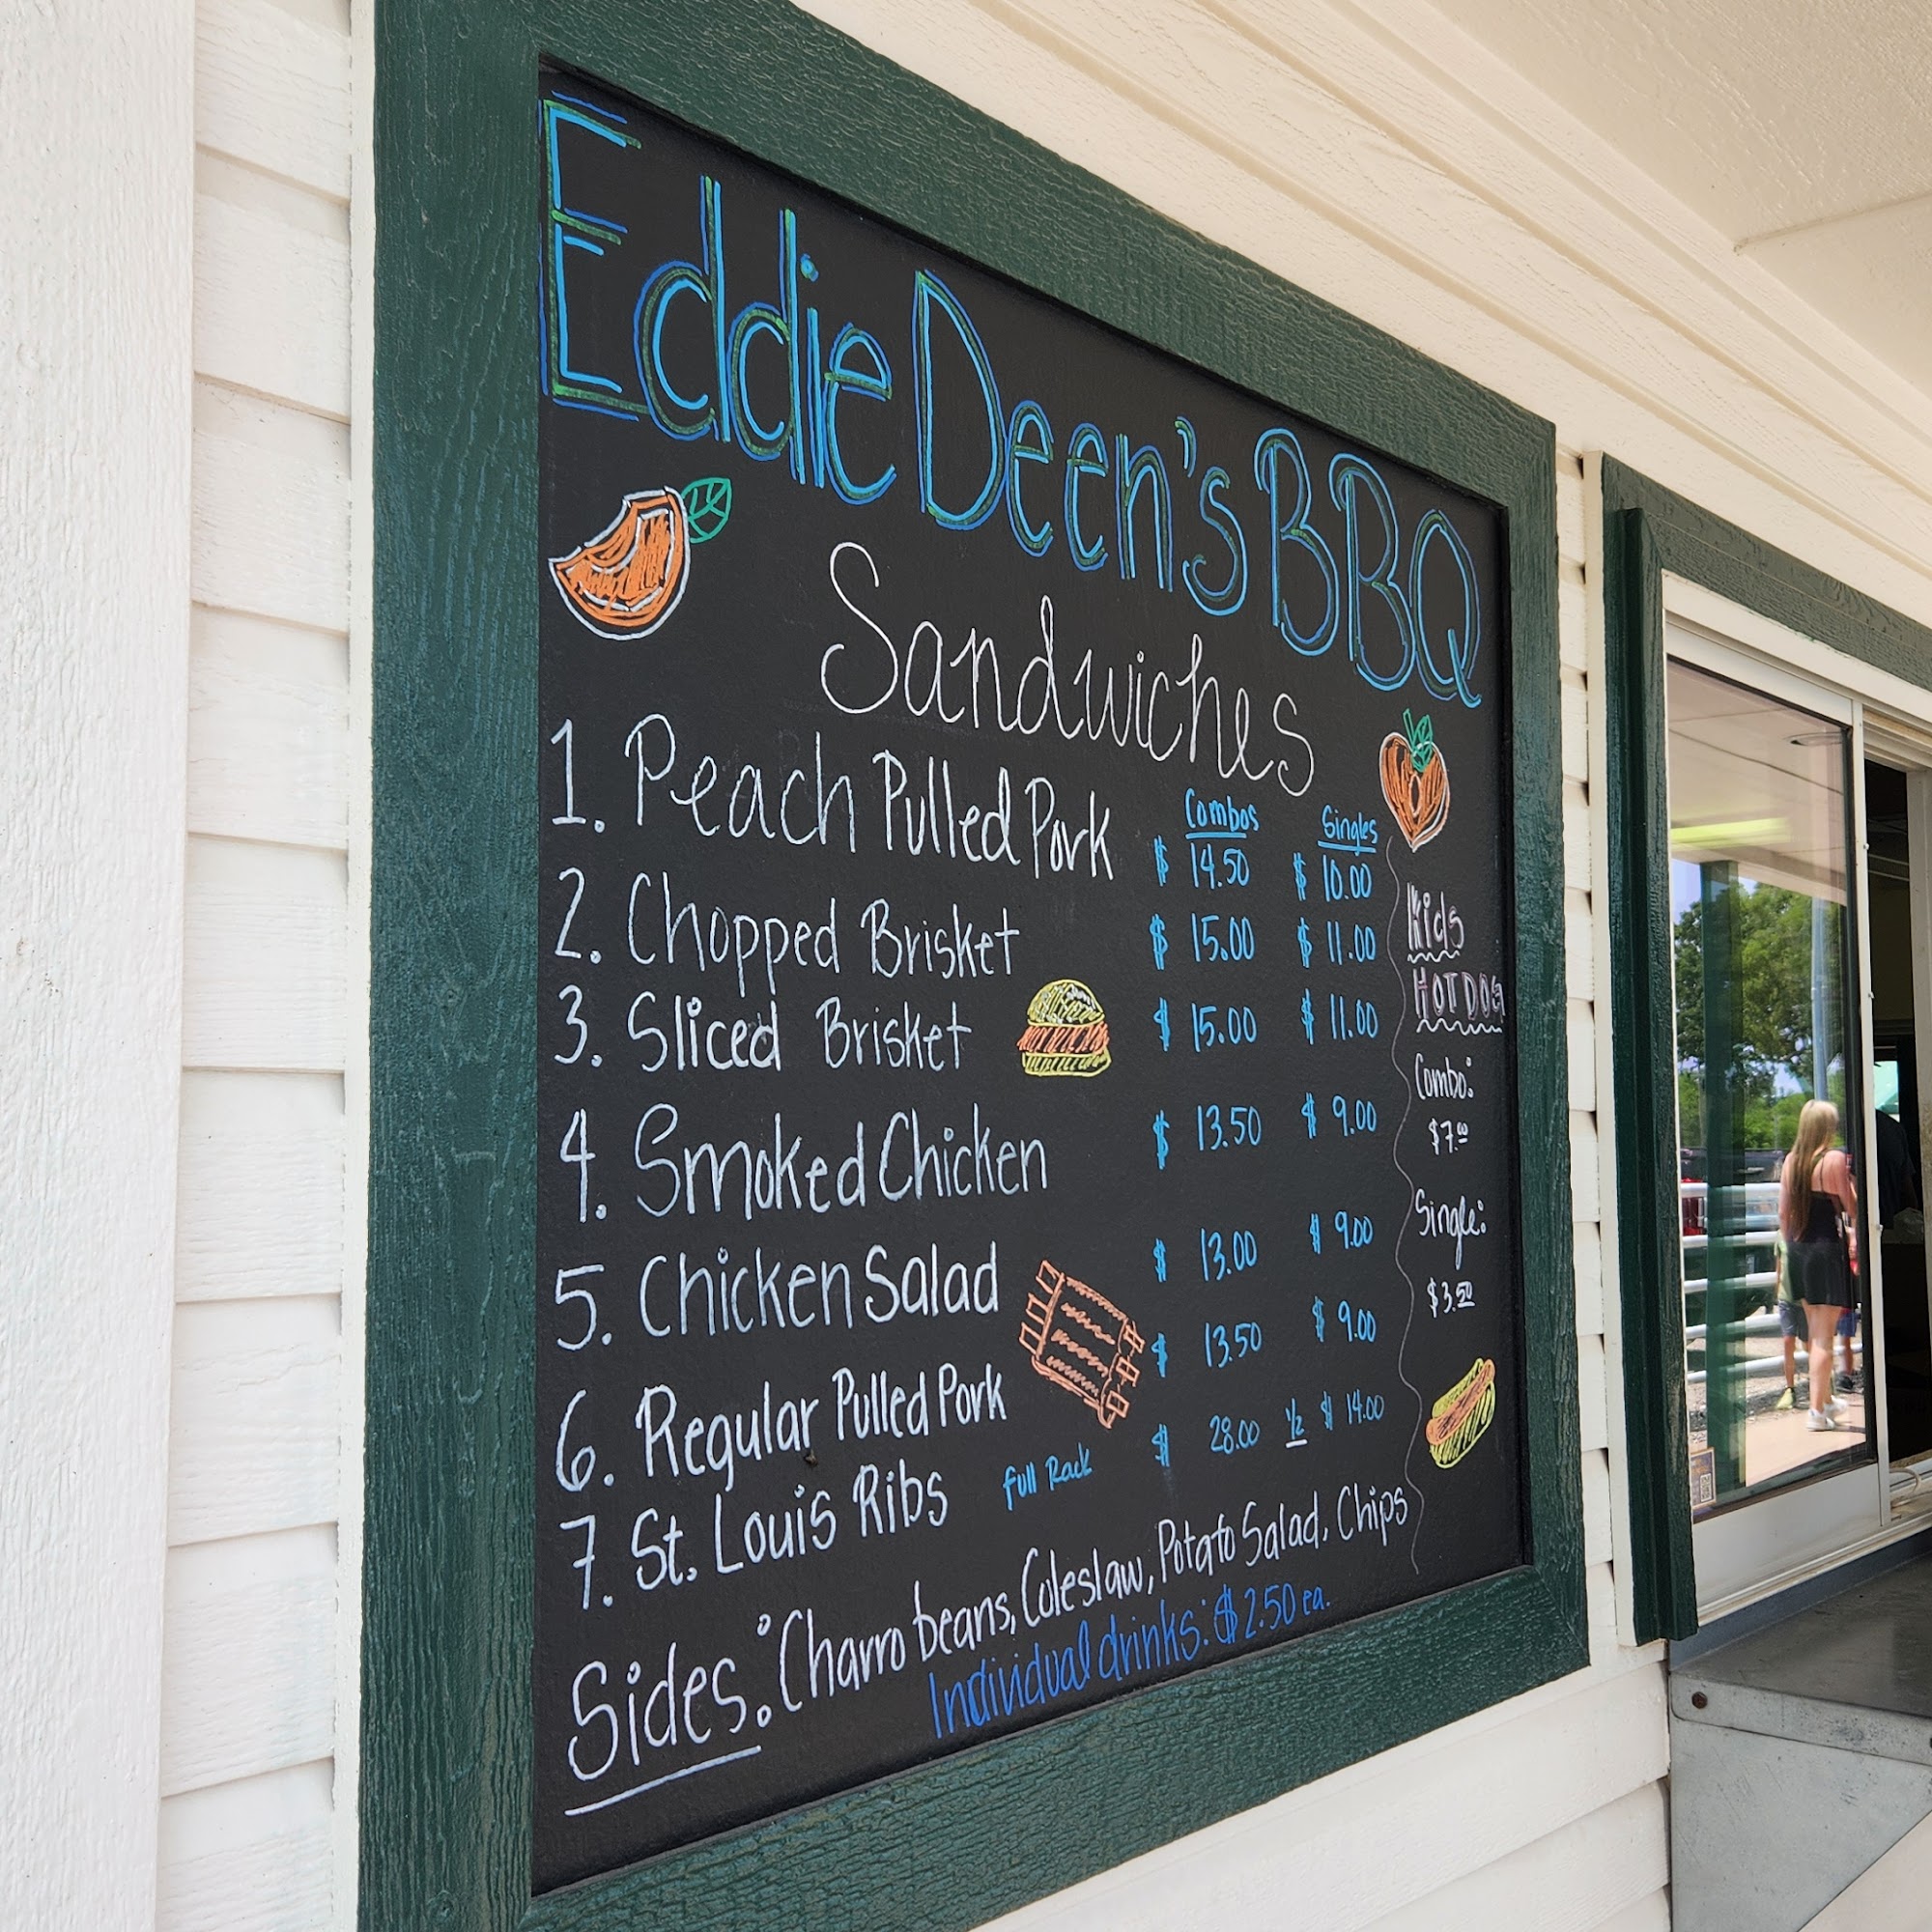 Eddie Deen's BBQ
Sandwiches
Combos Singles
1. Peach Pulled Pork $ 14.50 $ 10.00
2. Chopped Brisket $ 15.00 $ 11.00
3. Sliced Brisket $ 15.00 $ 11.00
4. Smoked Chicken $ 13.50 $ 9.00
5. Chicken Salad $ 13.00 $ 9.00
6. Regular Pulled Pork $ 13.50 $ 9.00
7. St. Louis Ribs full Rack $ 28.00 1/2 $ 14.00
Sides: Charro beans, Coleslaw, Potato Salad, Chips
Individual drinks: $ 2.50 ea.
Kids
HOT DOG
Combo:
$7.00
Single:
$3.50